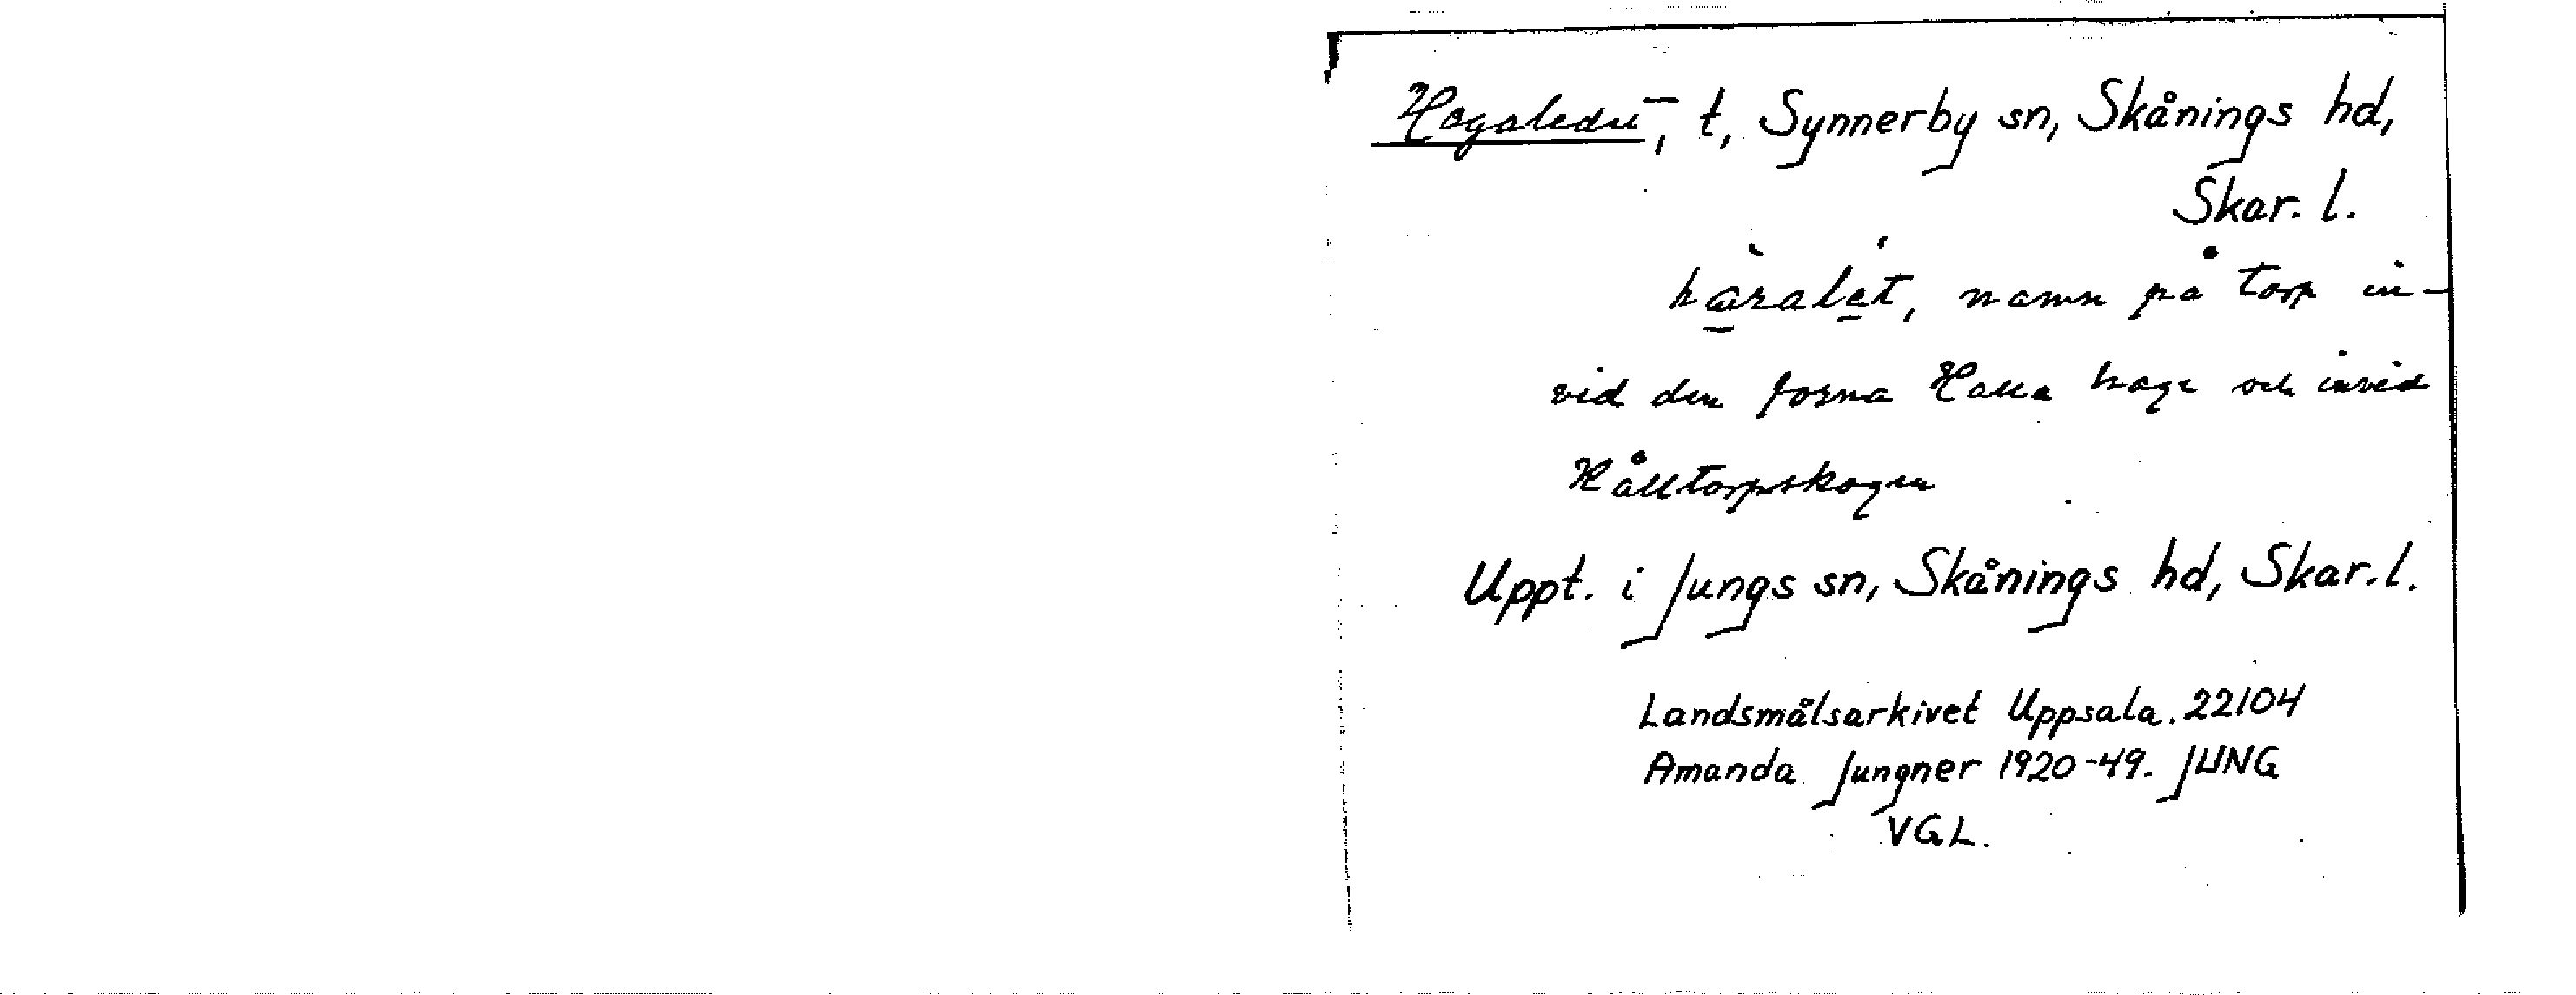 Hagaledet, t, Synnerby sn, Skånings hd,
Skar. l.
namn på torp in-
vid den forna Halla hage och invid
Hålltorpskogen
Uppt. i Jungs sn, Skånings hd, Skar. l.
Landsmålsarkivet Uppsala. 22104
Amanda Jungner 1920-49. JUNG
VGL.